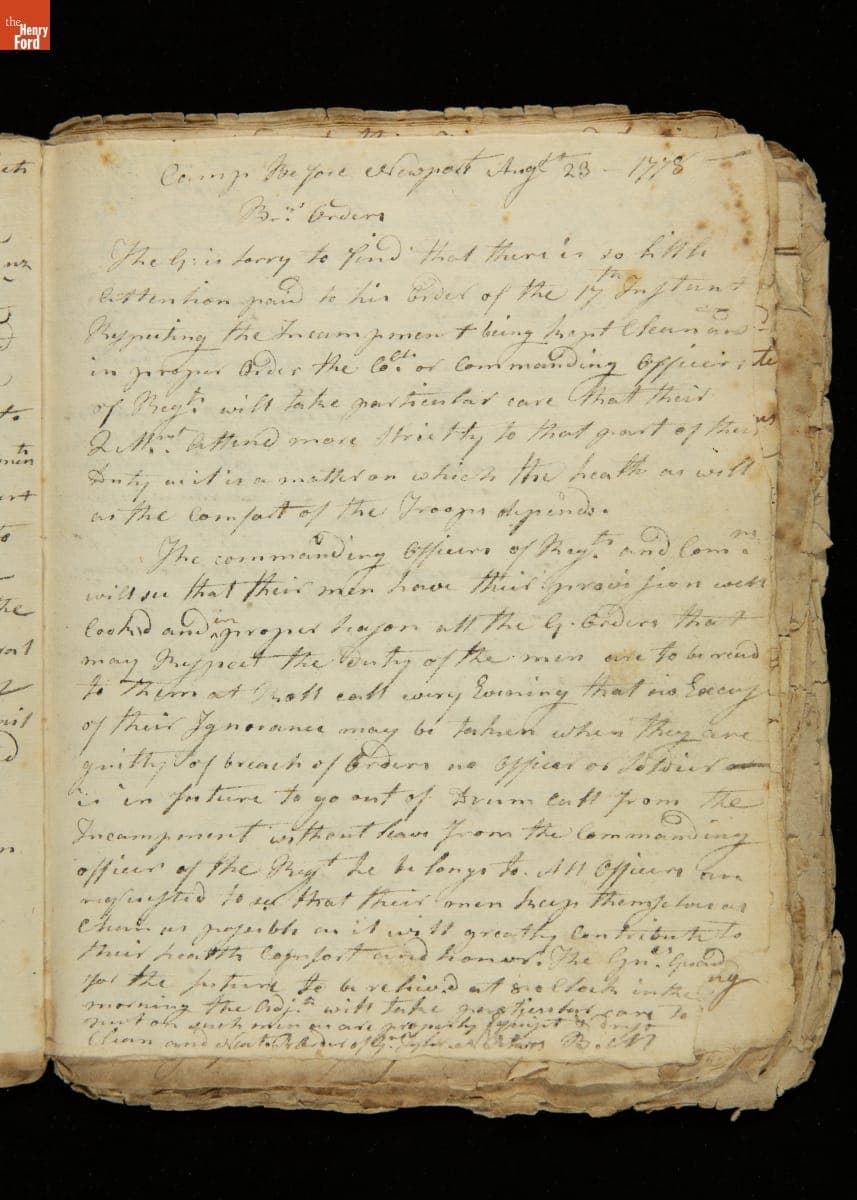 the
Henry
Ford
Camp Before Newport Augt 23 - 1778
Br:s Orders
The G: is sorry to find that there is so little
Attention paid to his Order of the 17th Instant
Respecting the Incampment being kept Clean and
in proper Order the Cols. or Commanding Officers
of Regts. will take particular care that their
Q Mrs. Attend more Strictly to that part of their
Duty as it is a matter on which the heath as will
as the Comfort of the Troops depends.
The commanding Officers of Regts. and Comns.
will see that their men have their provission well
Cook'd and in proper season all the G. Orders that
may Respect the Duty of the men are to be read
to them at Roll call every Evening that no Excuse
of their Ignorance may be taken when they are
guilty of breach of Orders no Officer or Soldier
is in future to go out of Drum Call from the
Incampment without leave from the Commanding
officer of the Regt he belongs to. All Officers are
requested to see that their men keep themselves as
Clean as possible as it will greatly Contribute to
their health Comfort and honor. The Gnls. Guard
for the future to be reliev'd at 8 o Clock in the
morning the Adjts will take particular care to
such men as are properly Equipt & drest
Clean and Neat Order of Gnl B. M